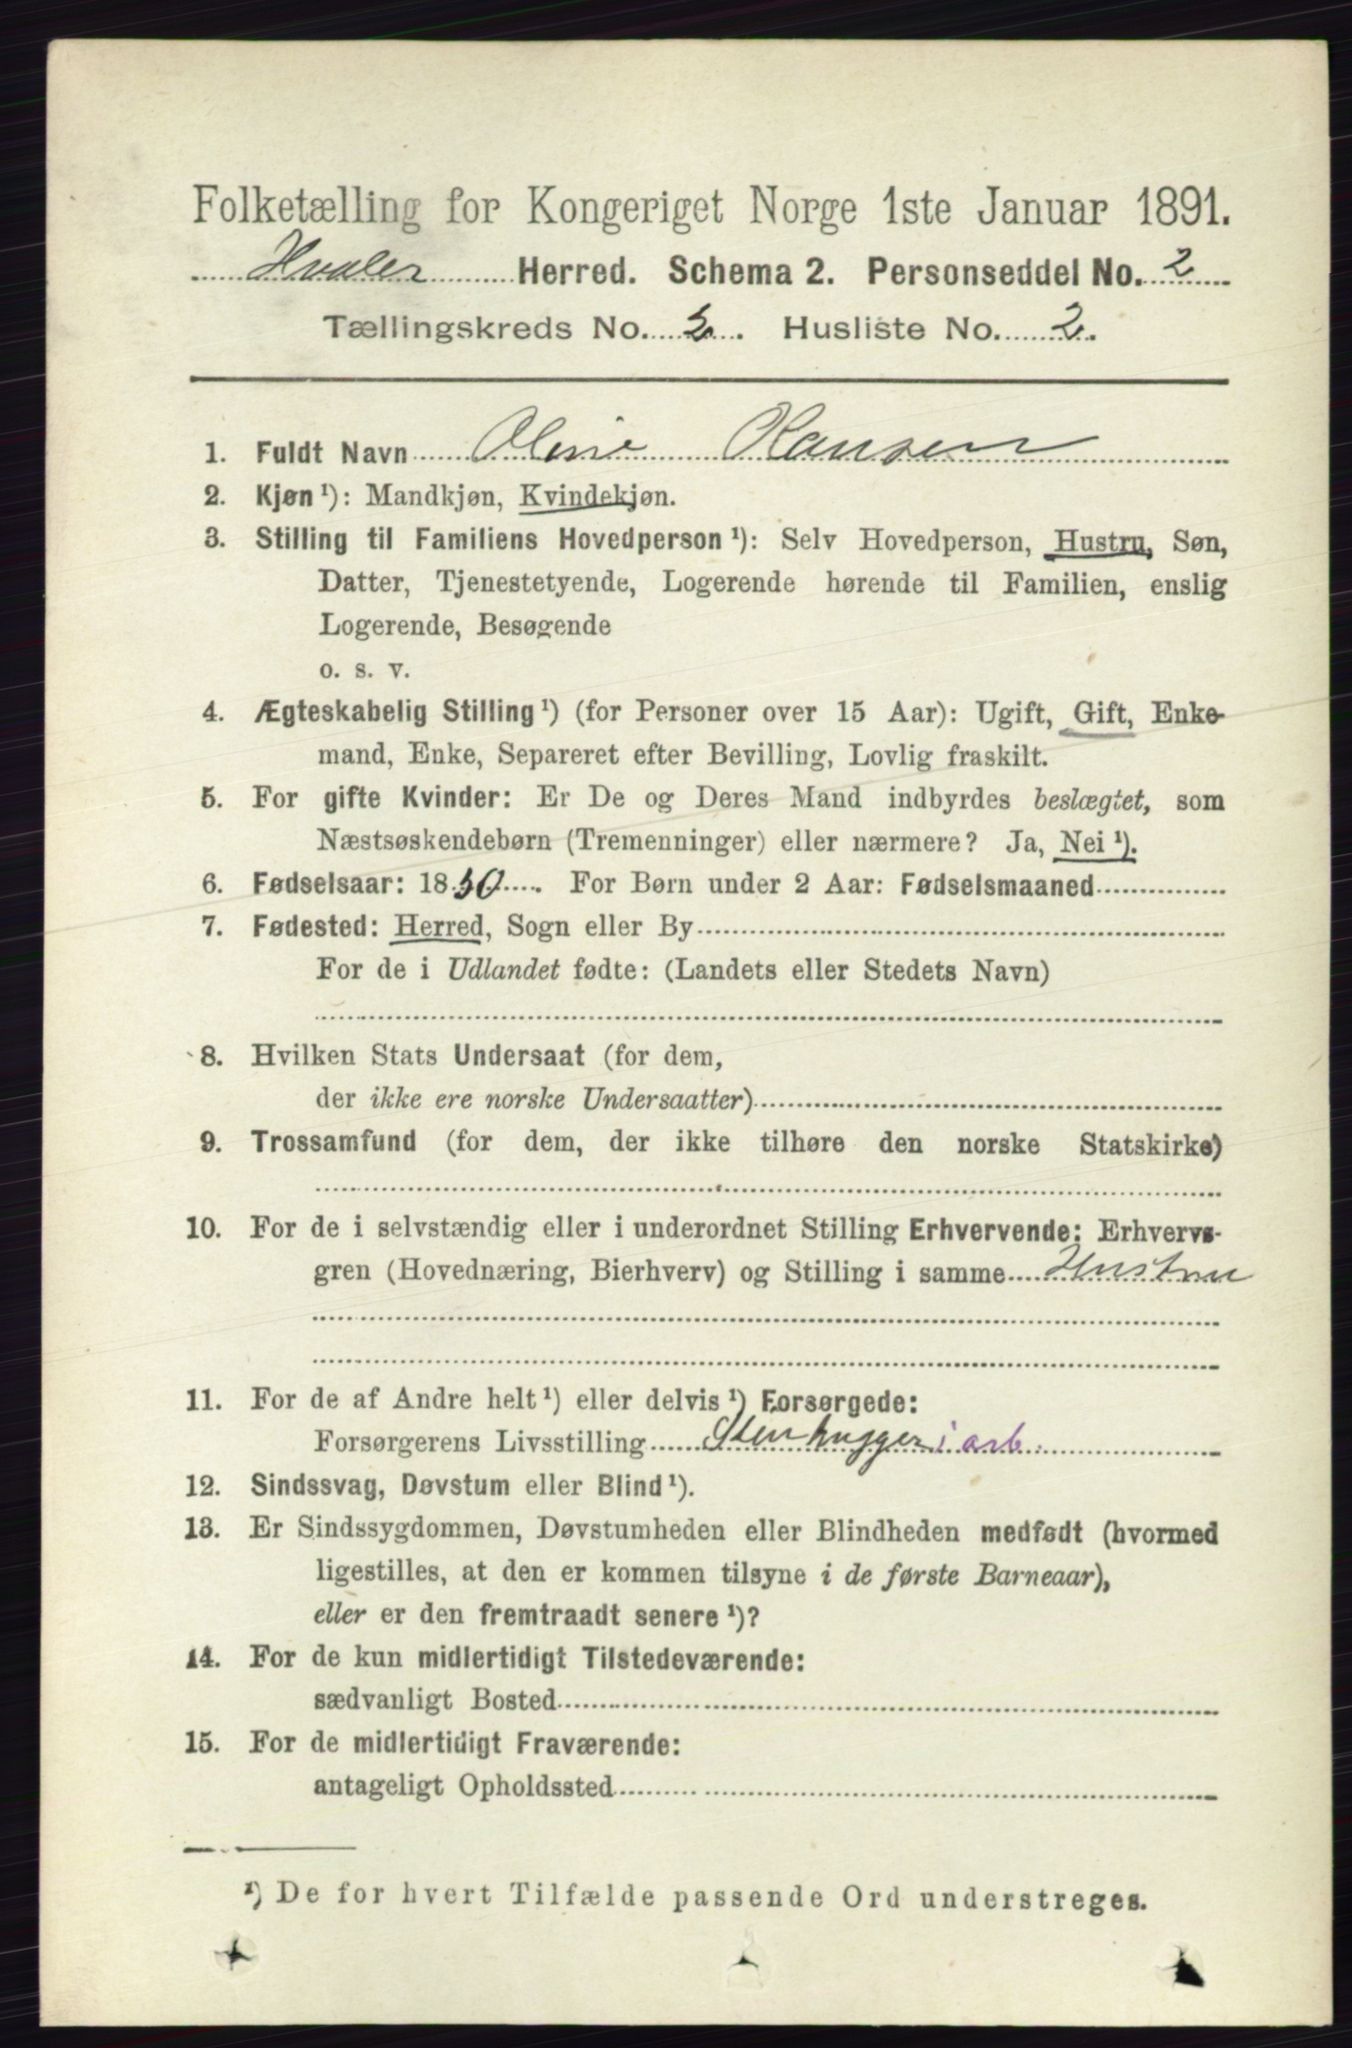 Folketælling for Kongeriget Norge 1ste Januar 1891.
Hvaler Herred. Schema 2. Personseddel No. 2
Tællingskreds No. 2. Husliste No. 2.
1. Fuldt Navn Oline Hansen
2. Kjøn ¹): Mandkjøn, Kvindekjøn.
3. Stilling til Familiens Hovedperson ¹): Selv Hovedperson, Hustru, Søn,
Datter, Tjenestetyende, Logerende hørende til Familien, enslig
Logerende, Besøgende
o. s. v.
4. Ægteskabelig Stilling ¹) (for Personer over 15 Aar): Ugift, Gift, Enke-
mand, Enke, Separeret efter Bevilling, Lovlig fraskilt.
5. For gifte Kvinder: Er De og Deres Mand indbyrdes beslægtet, som
Næstsøskendebørn (Tremenninger) eller nærmere? Ja, Nei ¹).
6. Fødselsaar: 1850. For Børn under 2 Aar: Fødselsmaaned
7. Fødested: Herred, Sogn eller By
For de i Udlandet fødte: (Landets eller Stedets Navn)
8. Hvilken Stats Undersaat (for dem,
der ikke ere norske Undersaatter)
9. Trossamfund (for dem, der ikke tilhøre den norske Statskirke)
10. For de i selvstændig eller i underordnet Stilling Erhvervende: Erhvervs-
gren (Hovednæring, Bierhverv) og Stilling i samme Hustru
11. For de af Andre helt ¹) eller delvis ¹) Forsørgede:
Forsørgerens Livsstilling Stenhugger i arb.
12. Sindssvag, Døvstum eller Blind ¹).
13. Er Sindssygdommen, Døvstumheden eller Blindheden medfødt (hvormed
ligestilles, at den er kommen tilsyne i de første Barneaar),
eller er den fremtraadt senere ¹)?
14. For de kun midlertidigt Tilstedeværende:
sædvanligt Bosted
15. For de midlertidigt Fraværende:
antageligt Opholdssted
¹) De for hvert Tilfælde passende Ord understreges.